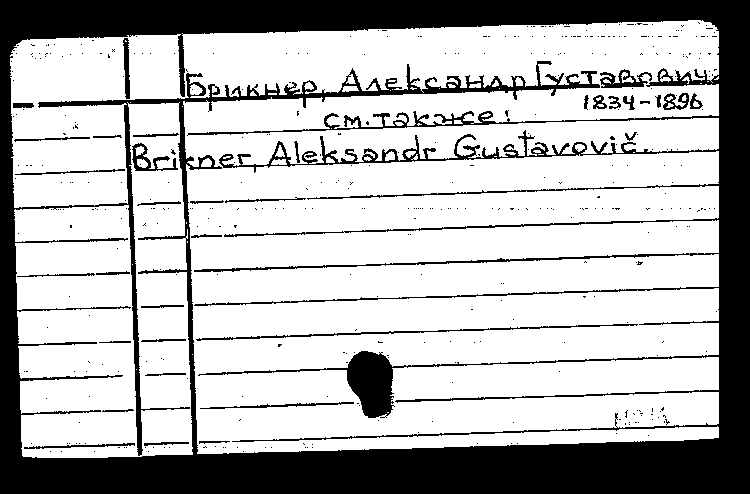 Брикнер, Александр Густавович.
1834-1896
см. также:
Brikner, Aleksandr Gustavovič.